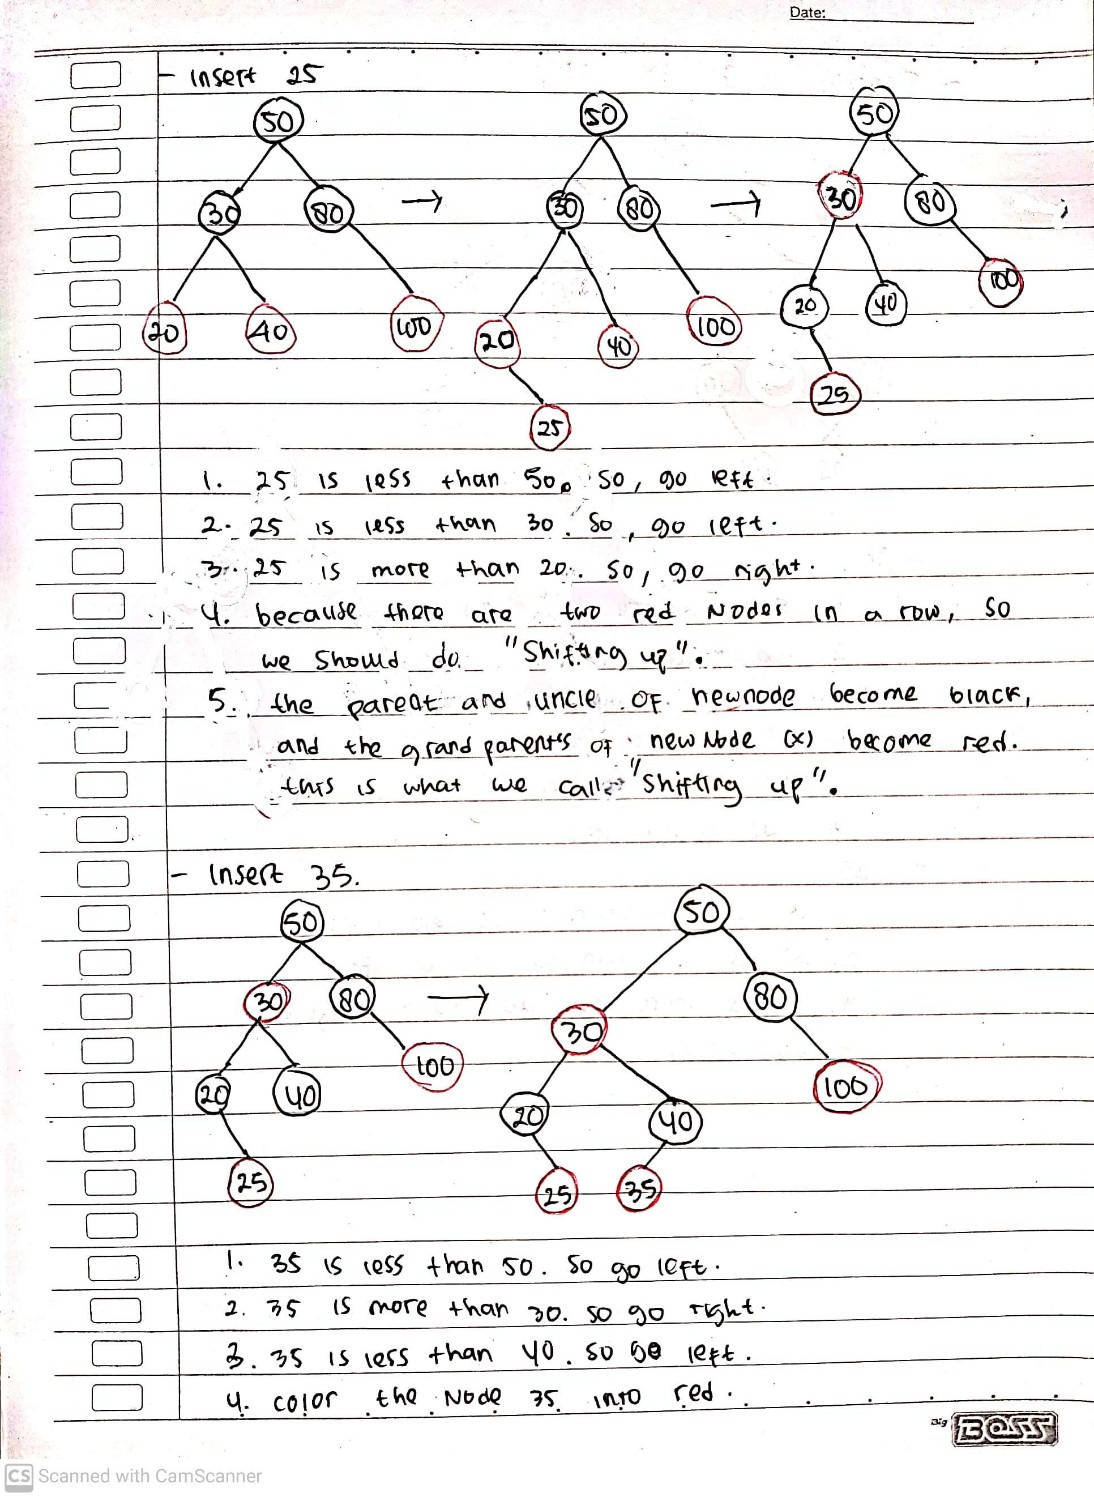 Date:
- Insert 25
50 50 50
30 80 → 30 80 → 30 80 ;
20 40 100 20 40 100 20 40 100
25 25
1. 25 is less than 50. so, go left.
2. 25 is less than 30. So, go left.
3. 25 is more than 20. so, go right.
4. because there are two red Nodes in a row, so
we should do "Shifting up".
5. the parent and uncle of newnode become black,
and the grandparents of newNode (x) become red.
this is what we call "Shifting up".
- Insert 35.
50 50
30 80 → 30 80
20 40 100 20 40 100
25 25 35
1. 35 is less than 50. So go left.
2. 35 is more than 30. so go right.
3. 35 is less than 40. so go left.
4. color the Node 35 into red.
Big BOSS
CS Scanned with CamScanner